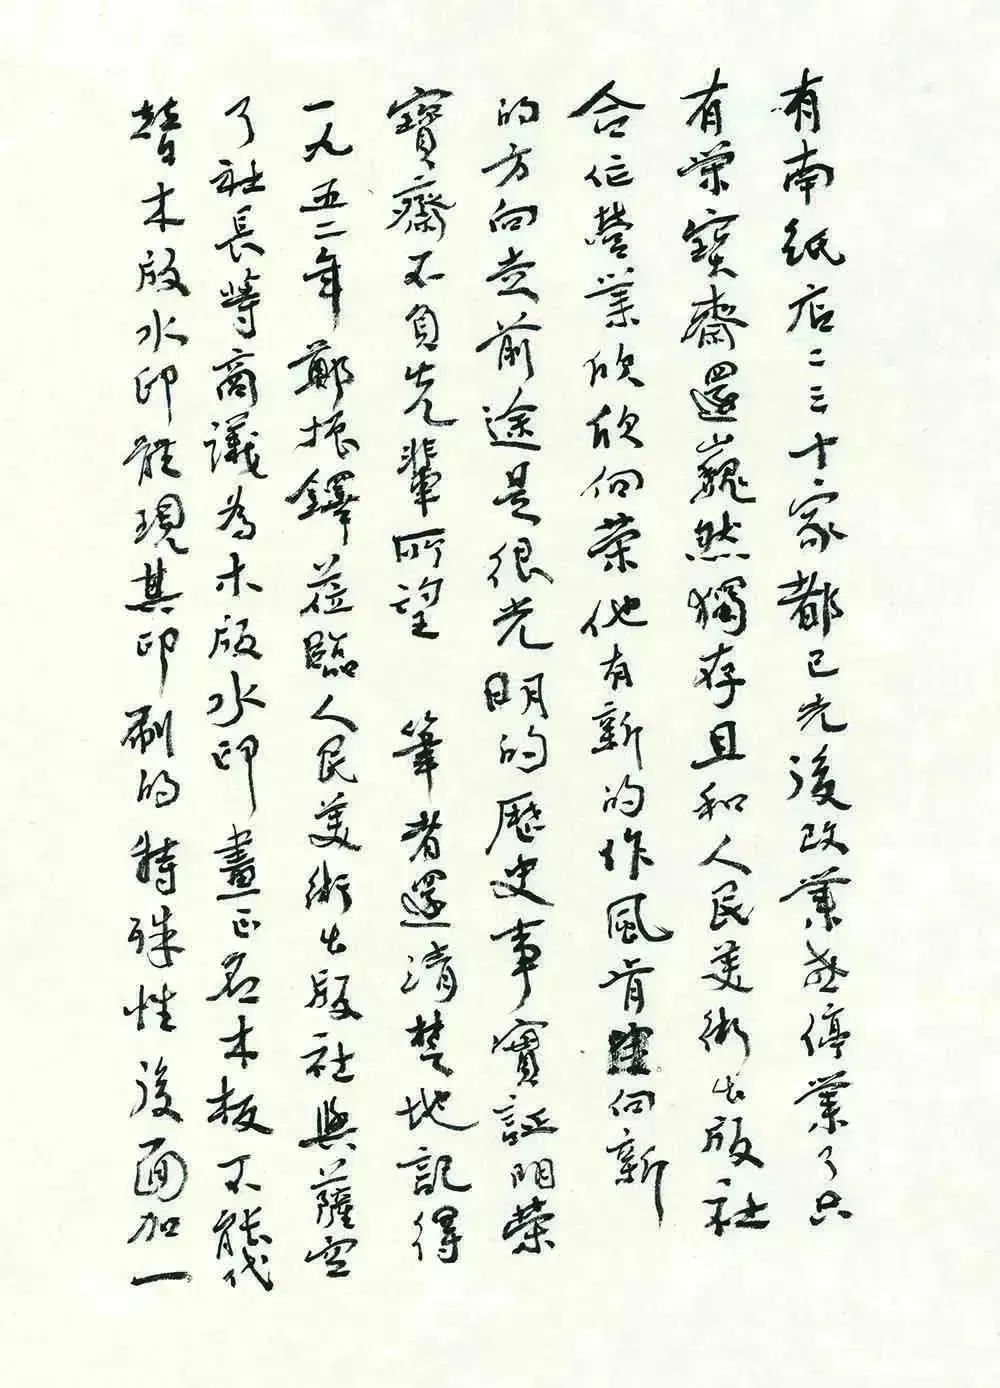 有南紙店二三十家都已先後改業或停業了只
有荣寶齋還巍然獨存且和人民美術出版社
合作營業欣欣向荣他有新的作風肯向新
的方向走前途是很光明的歷史事實証明荣
寶齋不負先輩所望 筆者還清楚地記得
一九五二年鄭振鐸蒞臨人民美術出版社與薩空
了社長等商議為木版水印畫正名木板不能代
替木版水印能現其印刷的特殊性後面加一